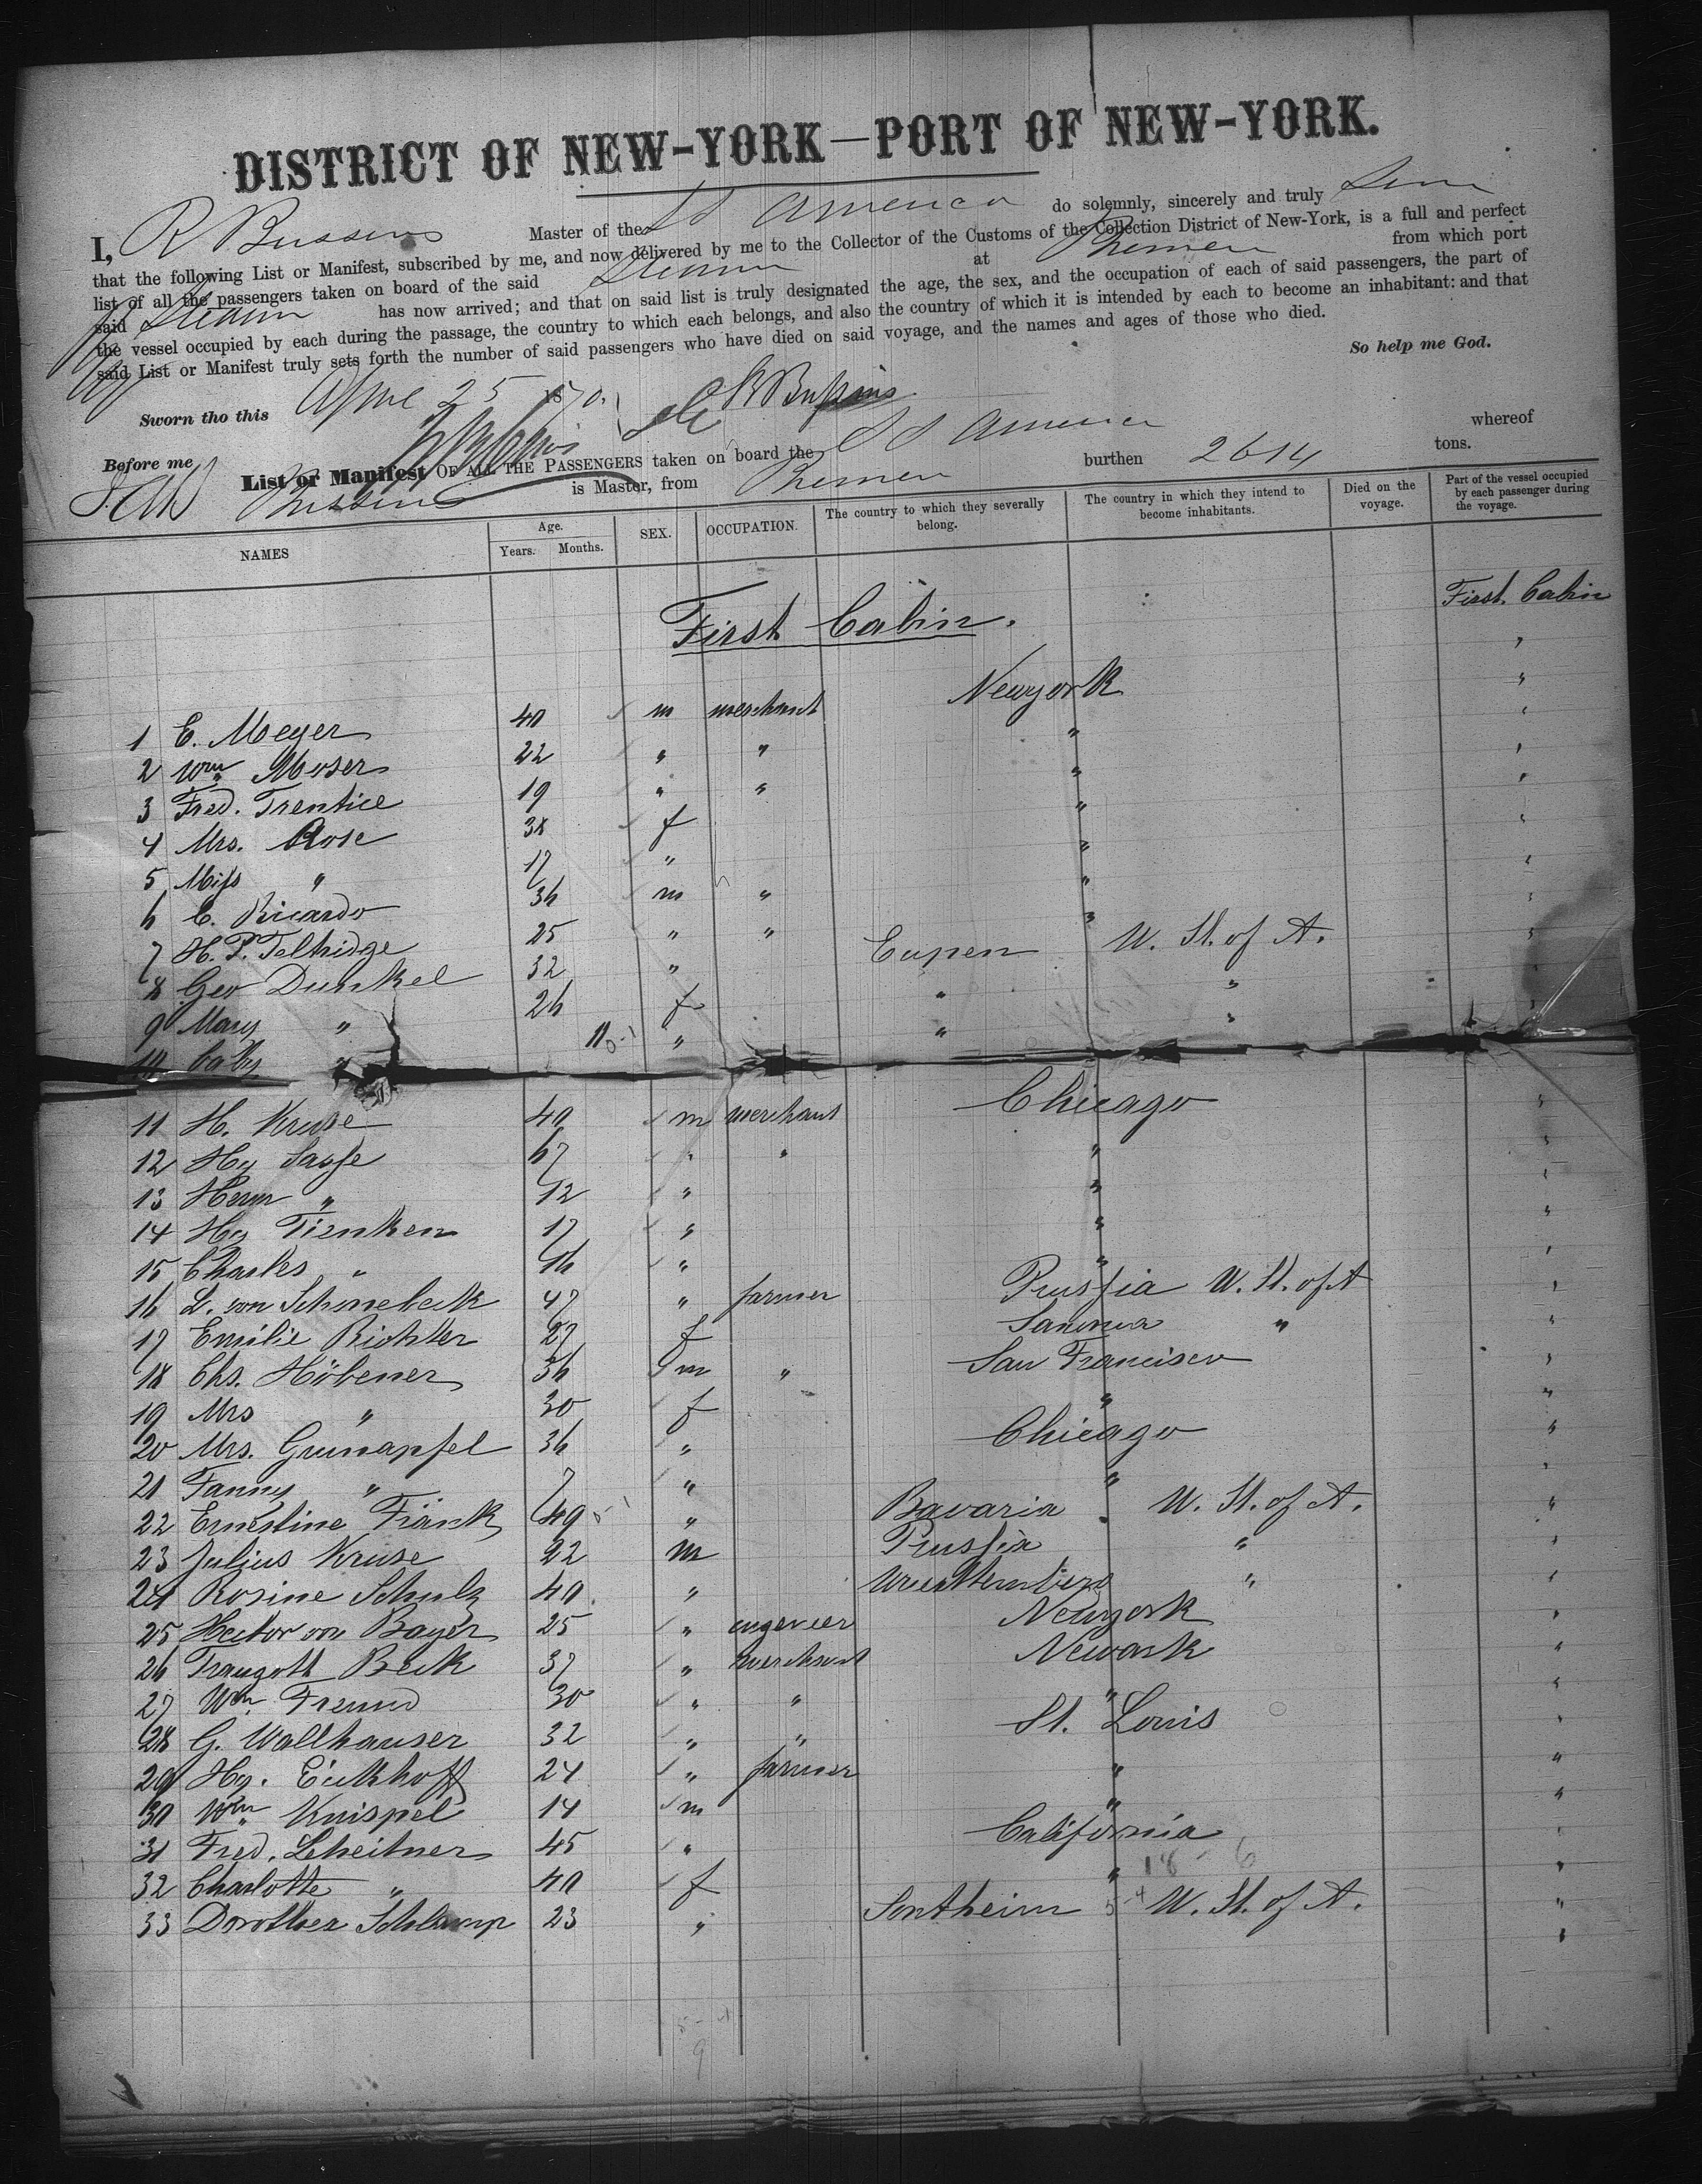 DISTRICT OF NEW-YORK—PORT OF NEW-YORK.
I, R Bussius Master of the SS America do solemnly, sincerely and truly
that the following List or Manifest, subscribed by me, and now delivered by me to the Collector of the Customs of the Collection District of New-York, is a full and perfect
list of all the passengers taken on board of the said Steam at Bremen from which port
said Steam has now arrived; and that on said list is truly designated the age, the sex, and the occupation of each of said passengers, the part of
the vessel occupied by each during the passage, the country to which each belongs, and also the country of which it is intended by each to become an inhabitant: and that
said List or Manifest truly sets forth the number of said passengers who have died on said voyage, and the names and ages of those who died.
So help me God.
Sworn tho this April 25 1870. R Bussius
Before me
List or Manifest OF ALL THE PASSENGERS taken on board the SS America whereof
Bussius is Master, from Bremen burthen 2614 tons.
NAMES Age. Years. Months. SEX. OCCUPATION. The country to which they severally belong. The country in which they intend to become inhabitants. Died on the voyage. Part of the vessel occupied by each passenger during the voyage.
First Cabin. First Cabin
1 E. Meyer 40 m merchant Newyork "
2 Wm Moser 22 " " " "
3 Fred. Trentice 19 " " " "
4 Mrs. Rose 38 f " "
5 Miss " 17 " " "
6 C. Ricardo 36 m " " "
7 H. P. Telhidge 25 " " " "
8 Geo Dunkel 32 " Eupen U. St. of A. "
9 Mary " 26 f " " "
10 baby " 11 " " " "
11 H. Kruse 40 m merchant Chicago "
12 Hy Sasse 67 " " " "
13 Herm " 12 " " "
14 Hy Tienken 17 " " "
15 Charles " 16 " " "
16 L. von Schonebeck 47 " farmer Prussia U. St. of A "
17 Emilie Richter 27 f " "
18 Chs. Höbener 36 m " San Francisco "
19 Mrs " 30 f " "
20 Mrs. Grunapfel 36 " Chicago "
21 Fanny " 7 " " "
22 Ernestine Fränk 49 " Bavaria U. St. of A. "
23 Julius Kruse 22 m Prussia " "
24 Rosine Schulz 40 " Wuerttemberg " "
25 Hector von Bayer 25 " engenier Newyork "
26 Traugott Beck 37 " merchant Newark "
27 Wm. Freund 30 " " " "
28 G. Wallhauser 32 " " St. Louis "
29 Hy. Eickhoff 24 " farmer " "
30 Wm Knispel 14 m " "
31 Fred. Scheitner 45 " California "
32 Charlotte " 40 f " "
33 Dorothea 23 " Sontheim U. St. of A. "